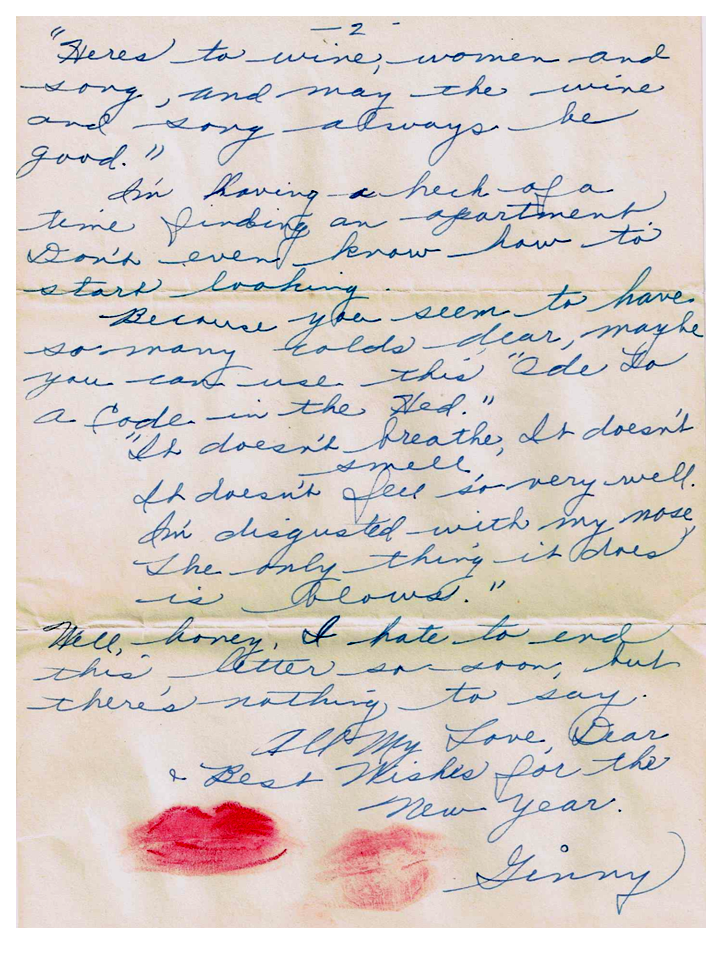 - 2 -
"Heres to wine, women and
song, and may the wine
and song always be
good."
I'm having a heck of a
time finding an apartment.
Don't even know how to
start looking.
Because you seem to have
so many colds dear, maybe
you can use this "Ode To
a Code in the Hed."
"It doesn't breathe, It doesn't
smell,
It doesn't feel so very well.
I'm disgusted with my nose,
The only thing it does
is blows."
Well, honey, I hate to end
this letter so soon, but
there's nothing to say.
All My Love, Dear
& Best Wishes for the
New Year.
Ginny